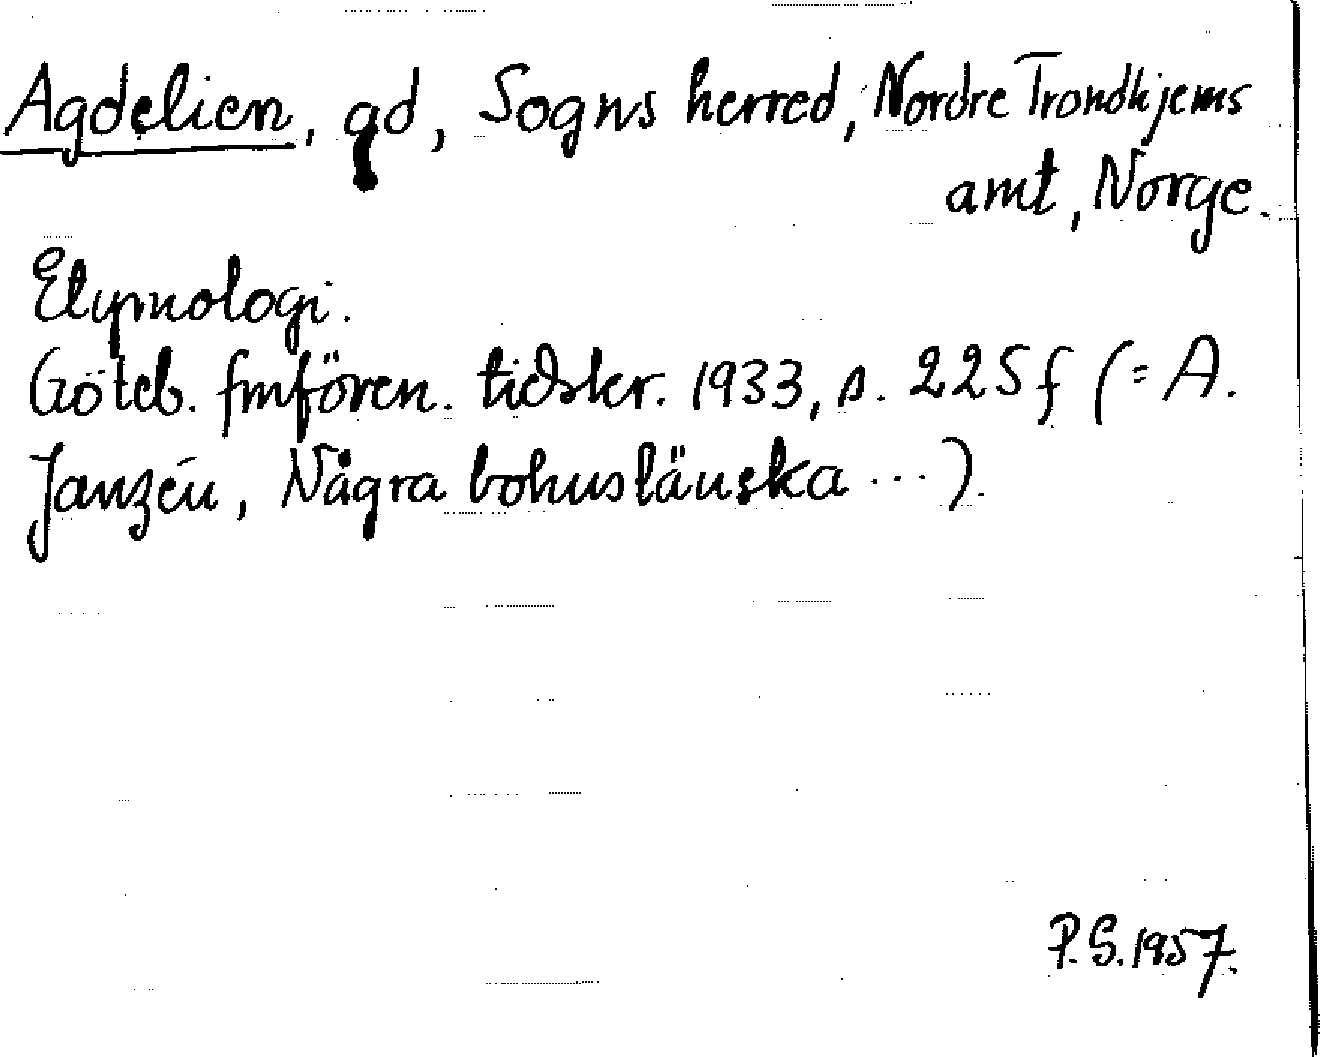 Agdelien, gd, Sogns herred, Nordre Trondhjems
amt, Norge.
Etymologi.
Göteb. fmfören. tidskr. 1933, s. 225 f (= A.
Janzén, Några bohuslänska ...).
P.S. 1957.